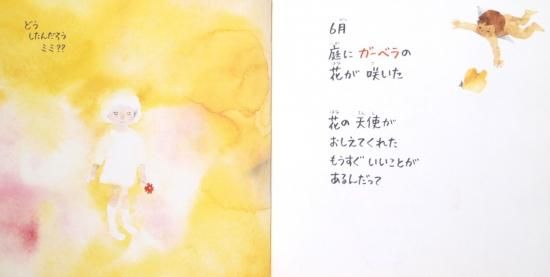 どう
したんだろう
ミミ??
6月
庭に ガーベラの
花が 咲いた
花の 天使が
おしえてくれた
もうすぐ いいことが
あるんだって